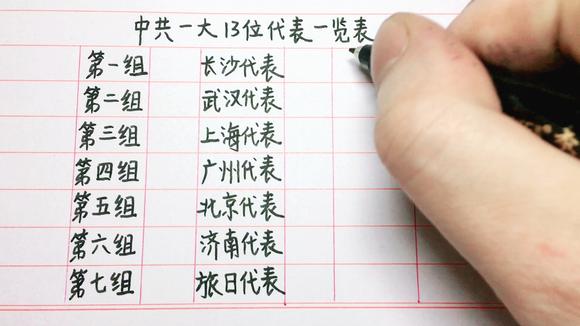 中共一大13位代表一览表
第一组 长沙代表
第二组 武汉代表
第三组 上海代表
第四组 广州代表
第五组 北京代表
第六组 济南代表
第七组 旅日代表